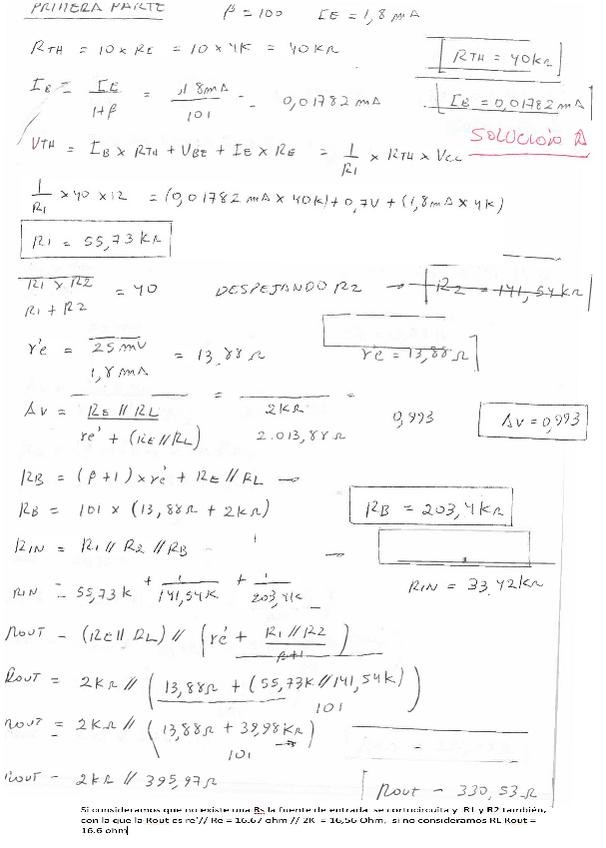 PRIMERA PARTE    β = 100    IE = 1,8 mA
RTH = 10 x RE = 10 x 4K = 40KΩ    RTH = 40KΩ
IB = IE / 1+β = 1,8mA / 101 = 0,01782 mA    IB = 0,01782 mA
SOLUCIÓN A
VTH = IB x RTH + VBE + IE x RE = 1/R1 x RTH x VCC
1/R1 x 40 x 12 = (0,01782 mA x 40K) + 0,7V + (1,8mA x 4K)
R1 = 55,73 KΩ
R1 x R2 / R1 + R2 = 40    DESPEJANDO R2 → R2 = 141,54KΩ
ré = 25 mV / 1,8 mA = 13,88 Ω    ré = 13,88 Ω
AV = RE // RL / ré + (RE // RL) = 2KΩ / 2.013,88 Ω = 0,993    AV = 0,993
RB = (β+1) x ré + RE // RL →
RB = 101 x (13,88Ω + 2KΩ)    RB = 203,4KΩ
RIN = R1 // R2 // RB
RIN = 55,73K + 1/141,54K + 1/203,4K    RIN = 33,42KΩ
ROUT = (RE // RL) // (ré + R1 // R2 / β+1)
ROUT = 2KΩ // (13,88Ω + (55,73K // 141,54K) / 101)
ROUT = 2KΩ // (13,88Ω + 39,98KΩ / 101)
ROUT = 2KΩ // 395,97Ω    ROUT = 330,53Ω
Si consideramos que no existe una Rs la fuente de entrada se cortocircuita y R1 y R2 también,
con la que la Rout es re'// Re = 16.67 ohm // 2K = 16,56 Ohm, si no consideramos RL Rout =
16.6 ohm